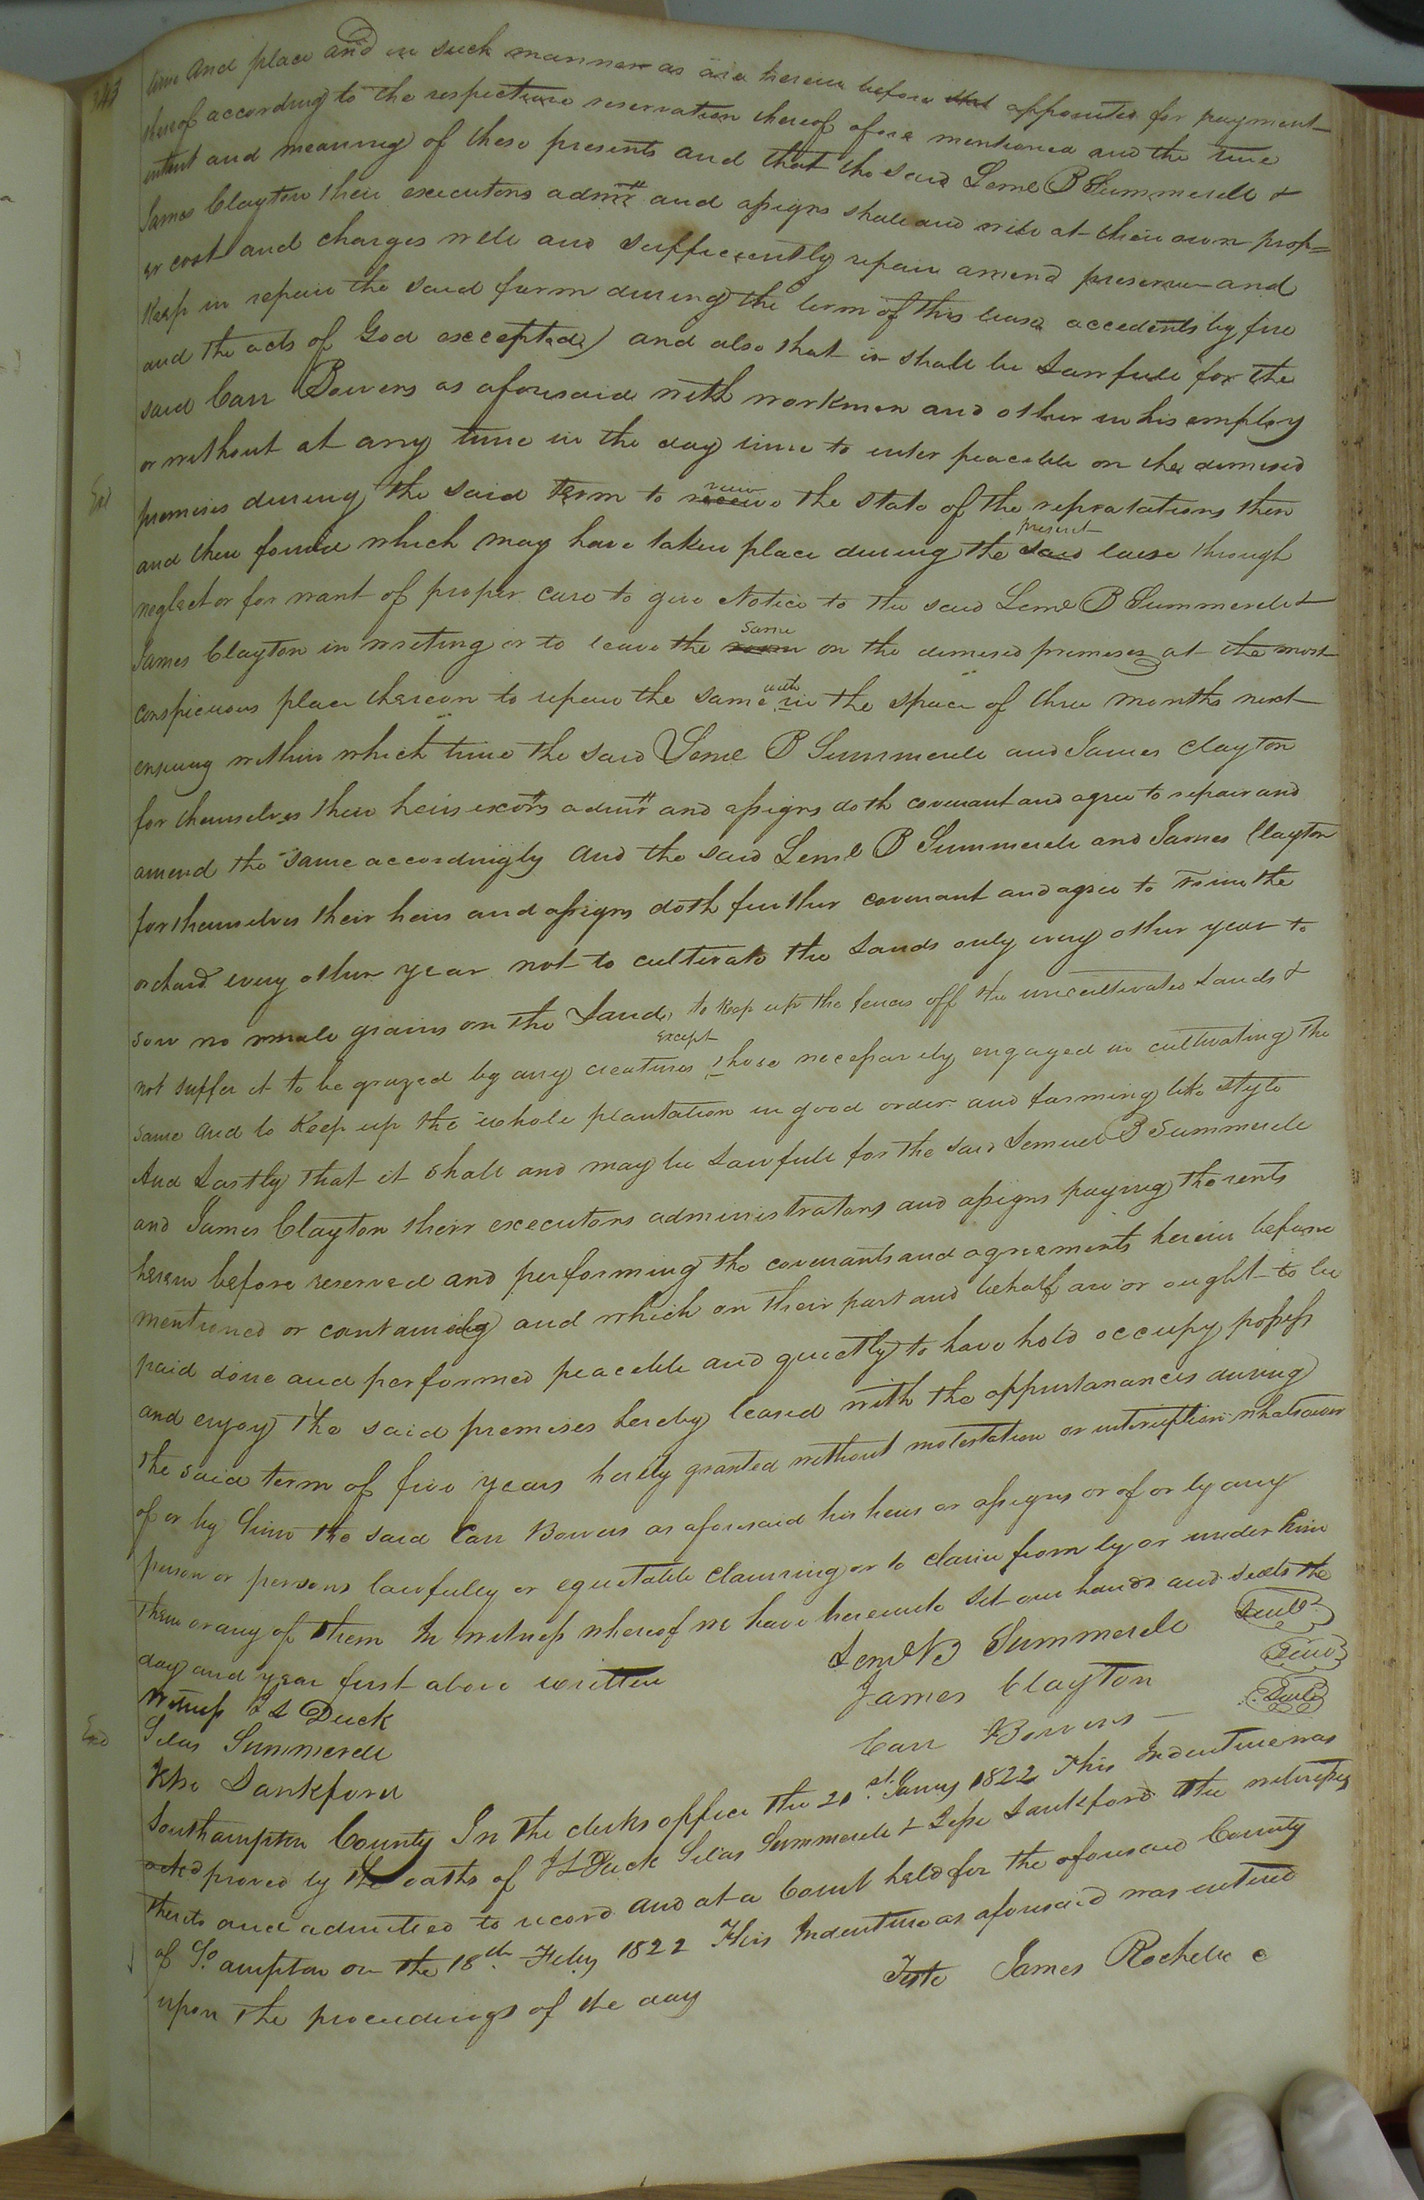 343
time and place and in such manner as are herein before that appointed for payment
thereof according to the respective reservation thereof afore mentioned and the true
intent and meaning of these presents and that the said Leml B Summerell &
James Clayton their executors admrs and assigns shall and will at their own prop=
er cost and charges well and sufficiently repair amend preserve and
Keep in repair the said farm during the term of this lease accedents by fire
and the acts of God excepted) and also that it shall be Lawfull for the
said Carr Bowers as aforesaid with workmen and other in his employ
or without at any time in the day time to enter peaceble on the demised
premises during the said term to receive view the state of the repratations then
and there found which may have taken place during the said present lease through
neglect or for want of proper care to give Notice to the said Leml B Summerell &
James Clayton in writing or to leave the same on the demised premises at the most
conspicuous place thereon to repair the same with in the space of three months next
ensuing within which time the said Leml B Summerell and James Clayton
for themselves their heirs exectrs admrs and assigns doth covenant and agree to repair and
amend the same accordingly and the said Leml B Summerell and James Clayton
for themselves their heirs and assigns doth further covenant and agree to Trim the
orchard every other year not to cultivate the Lands only every other year to
sow no small grains on the Land, to keep up the fences off the uncultivated Lands &
not suffer it to be grazed by any creatures except those necessarily engaged in cultivating the
same and to Keep up the whole plantation in good order and farming like style
And Lastly that it shall and may be Lawfull for the said Lemuel B Summerell
and James Clayton their executors administrators and assigns paying the rents
herein before reserved and performing the covenants and agreements herein before
mentioned or containing and which on their part and behalf are or ought to be
paid done and performed peaceble and quietly to have hold occupy possess
and enjoy the said premises hereby leased with the appurtanances during
the said term of five years hereby granted without molestation or interuption whatsoever
of or by him the said Carr Bowers as aforesaid his heirs or assigns or of or by any
person or persons lawfully or equitable claiming or to claim from by or under him
them or any of them In witness whereof we have hereunto set our hands and seals the
day and year first above written
Leml B Summerell Seal
Witness J L Duck James Clayton Seal
Silas Summerell Carr Bowers Seal
Lankford
Southampton County In the clerks office the 21st Jany 1822 This Indenture was
acked proved by the oaths of J L Duck Silas Summerell & Jesse Lankford the witnesses
thereto and admitted to record and at a Court held for the aforesaid County
of So ampton on the 18th Feby 1822 This Indenture as aforesaid was entered
upon the proceedings of the day
Teste James Rochelle c